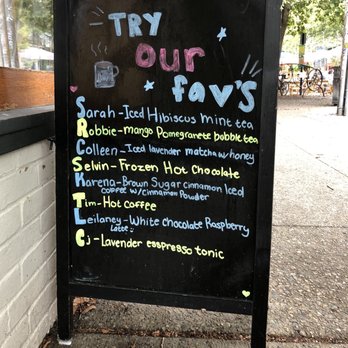 TRY
our
fav's
Sarah-Iced Hibiscus mint tea
Robbie-mango Pomegranete bobbletea
Colleen-Iced lavender matcha w/honey
Selvin-Frozen Hot Chocolate
Karena-Brown Sugar cinnamon Iced
coffee w/cinnamon Powder
Tim-Hot coffee
Leilaney-White Chocolate Raspberry
Latte
Cj-Lavender espresso tonic